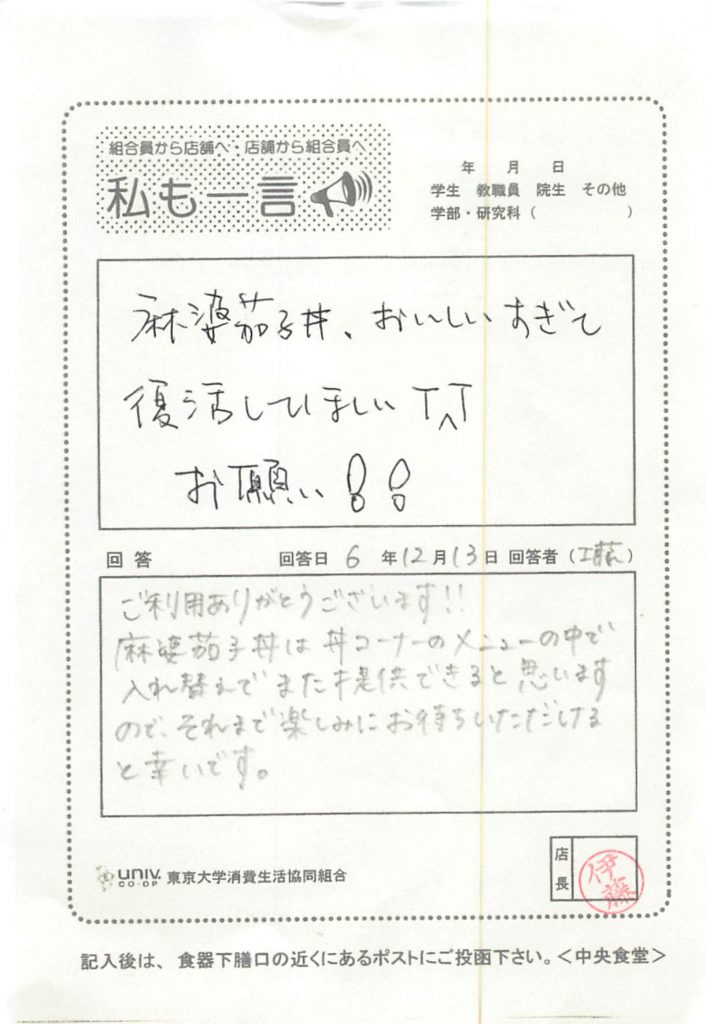 組合員から店舗へ・店舗から組合員へ
私も一言
年 月 日
学生 教職員 院生 その他
学部・研究科( )
麻婆茄子丼、おいしいすぎて
復活してほしい T^T
お願い!!
回答 回答日 6 年 12 月 13 日 回答者(工藤)
ご利用ありがとうございます!!
麻婆茄子丼は丼コーナーのメニューの中で
入れ替えでまた提供できると思います
ので、それまで楽しみにお待ちいただける
と幸いです。
店長
伊藤
UNIV. CO-OP 東京大学消費生活協同組合
記入後は、食器下膳口の近くにあるポストにご投函下さい。<中央食堂>